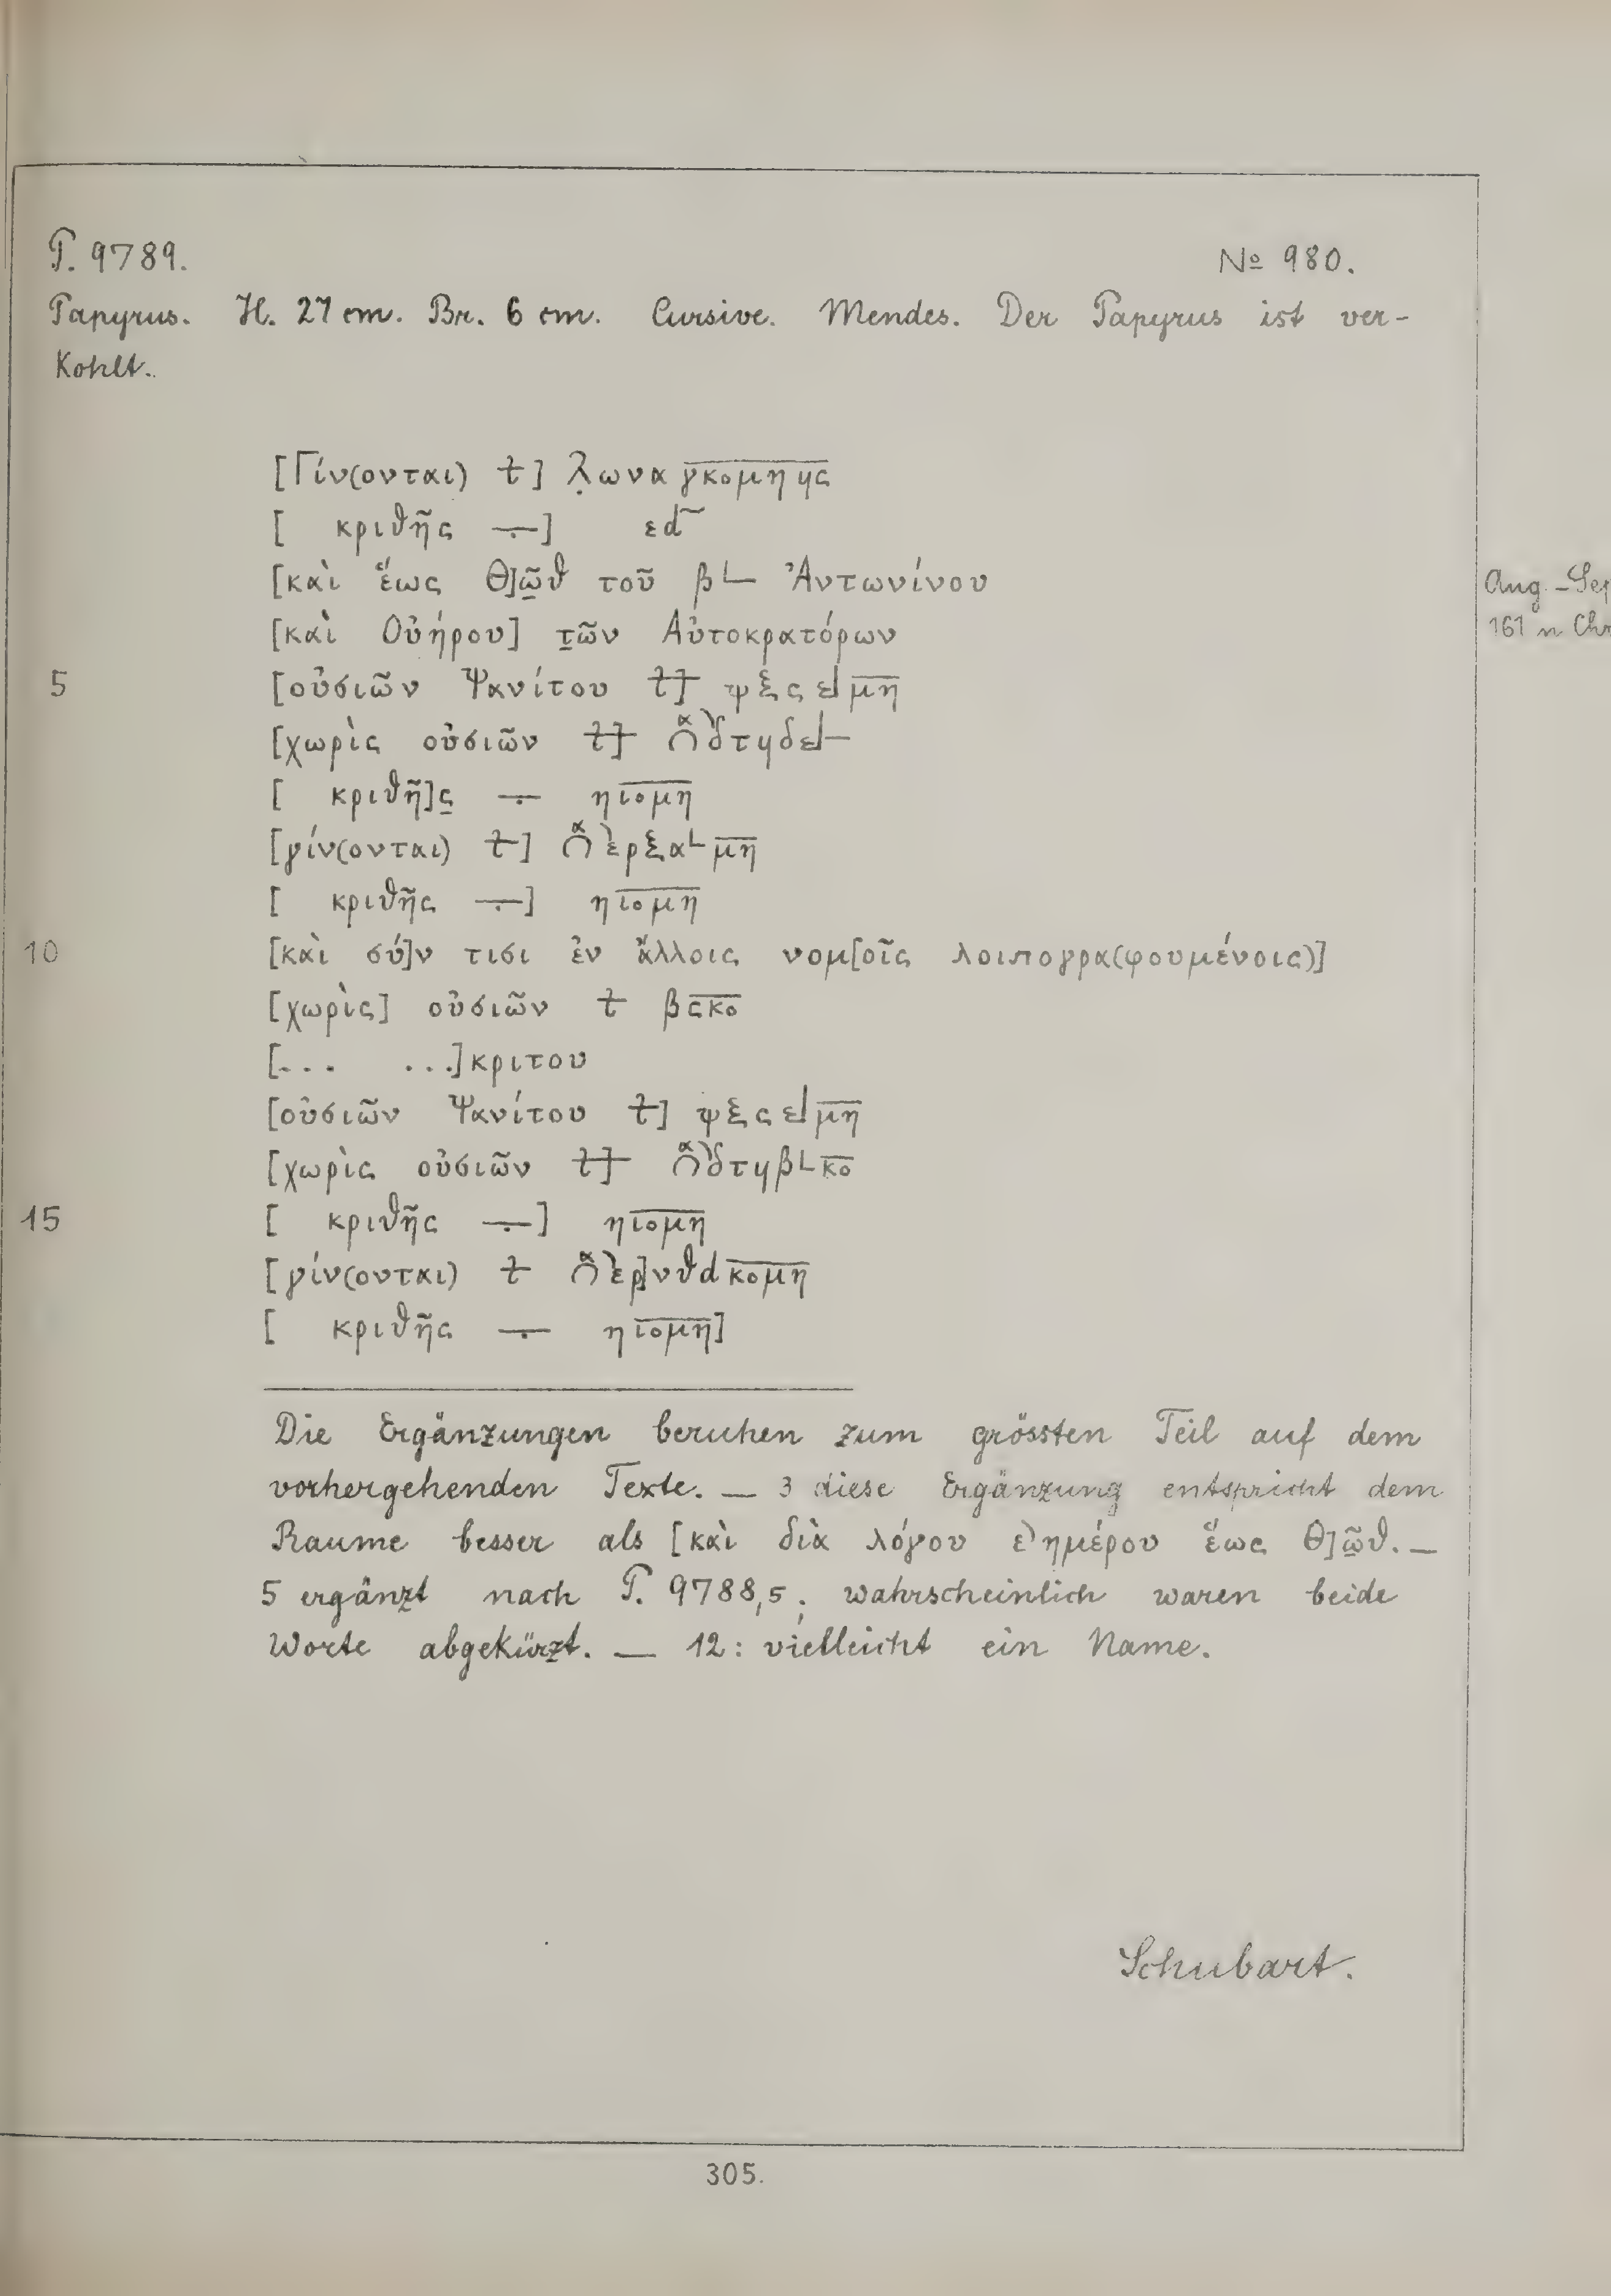 P. 9789. № 980.
Papyrus. H. 27 cm. Br. 6 cm. Cursive. Mendes. Der Papyrus ist ver-
kohlt.
[Γίν(ονται) ⳨] λ̣ωνα γ̅κ̅ο̅μ̅η̅ ϥς
[ κριθῆς ÷] εd͂
[καὶ ἕως Θ]ῶ̲θ τοῦ β𐅹 Ἀντωνίνου
Aug.-Sep
[καὶ Οὐήρου] τ̲ῶν Αὐτοκρατόρων
161 n Chr
5 [οὐσιῶν Ψανίτου ] ψξς μ̅η̅
[χωρὶς οὐσιῶν ]
[ κριθῆ]ς̲ ÷ η ι̅ο̅μ̅η̅
[γίν(ονται) ] μ̅η̅
[ κριθῆς ÷] η ι̅ο̅μ̅η̅
10 [καὶ σύ]ν τισι ἐν ἄλλοις νομ[οῖς λοιπογρα(φουμένοις)]
[χωρὶς] οὐσιῶν β ς̅κ̅ο̅
[... ...]κριτου
[οὐσιῶν Ψανίτου ] ψξς μ̅η̅
[χωρὶς οὐσιῶν ] κ̅ο̅
15 [ κριθῆς ÷] η ι̅ο̅μ̅η̅
[γίν(ονται) ]νθd κ̅ο̅μ̅η̅
[ κριθῆς ÷ η ι̅ο̅μ̅η̅]
Die Ergänzungen beruhen zum grössten Teil auf dem
vorhergehenden Texte. — 3 diese Ergänzung entspricht dem
Raume besser als [καὶ διὰ λόγου ε)ημέρου ἕως Θ]ῶ̲θ. —
5 ergänzt nach P. 9788,5; wahrscheinlich waren beide
Worte abgekürzt. — 12: vielleicht ein Name.
Schubart.
305.